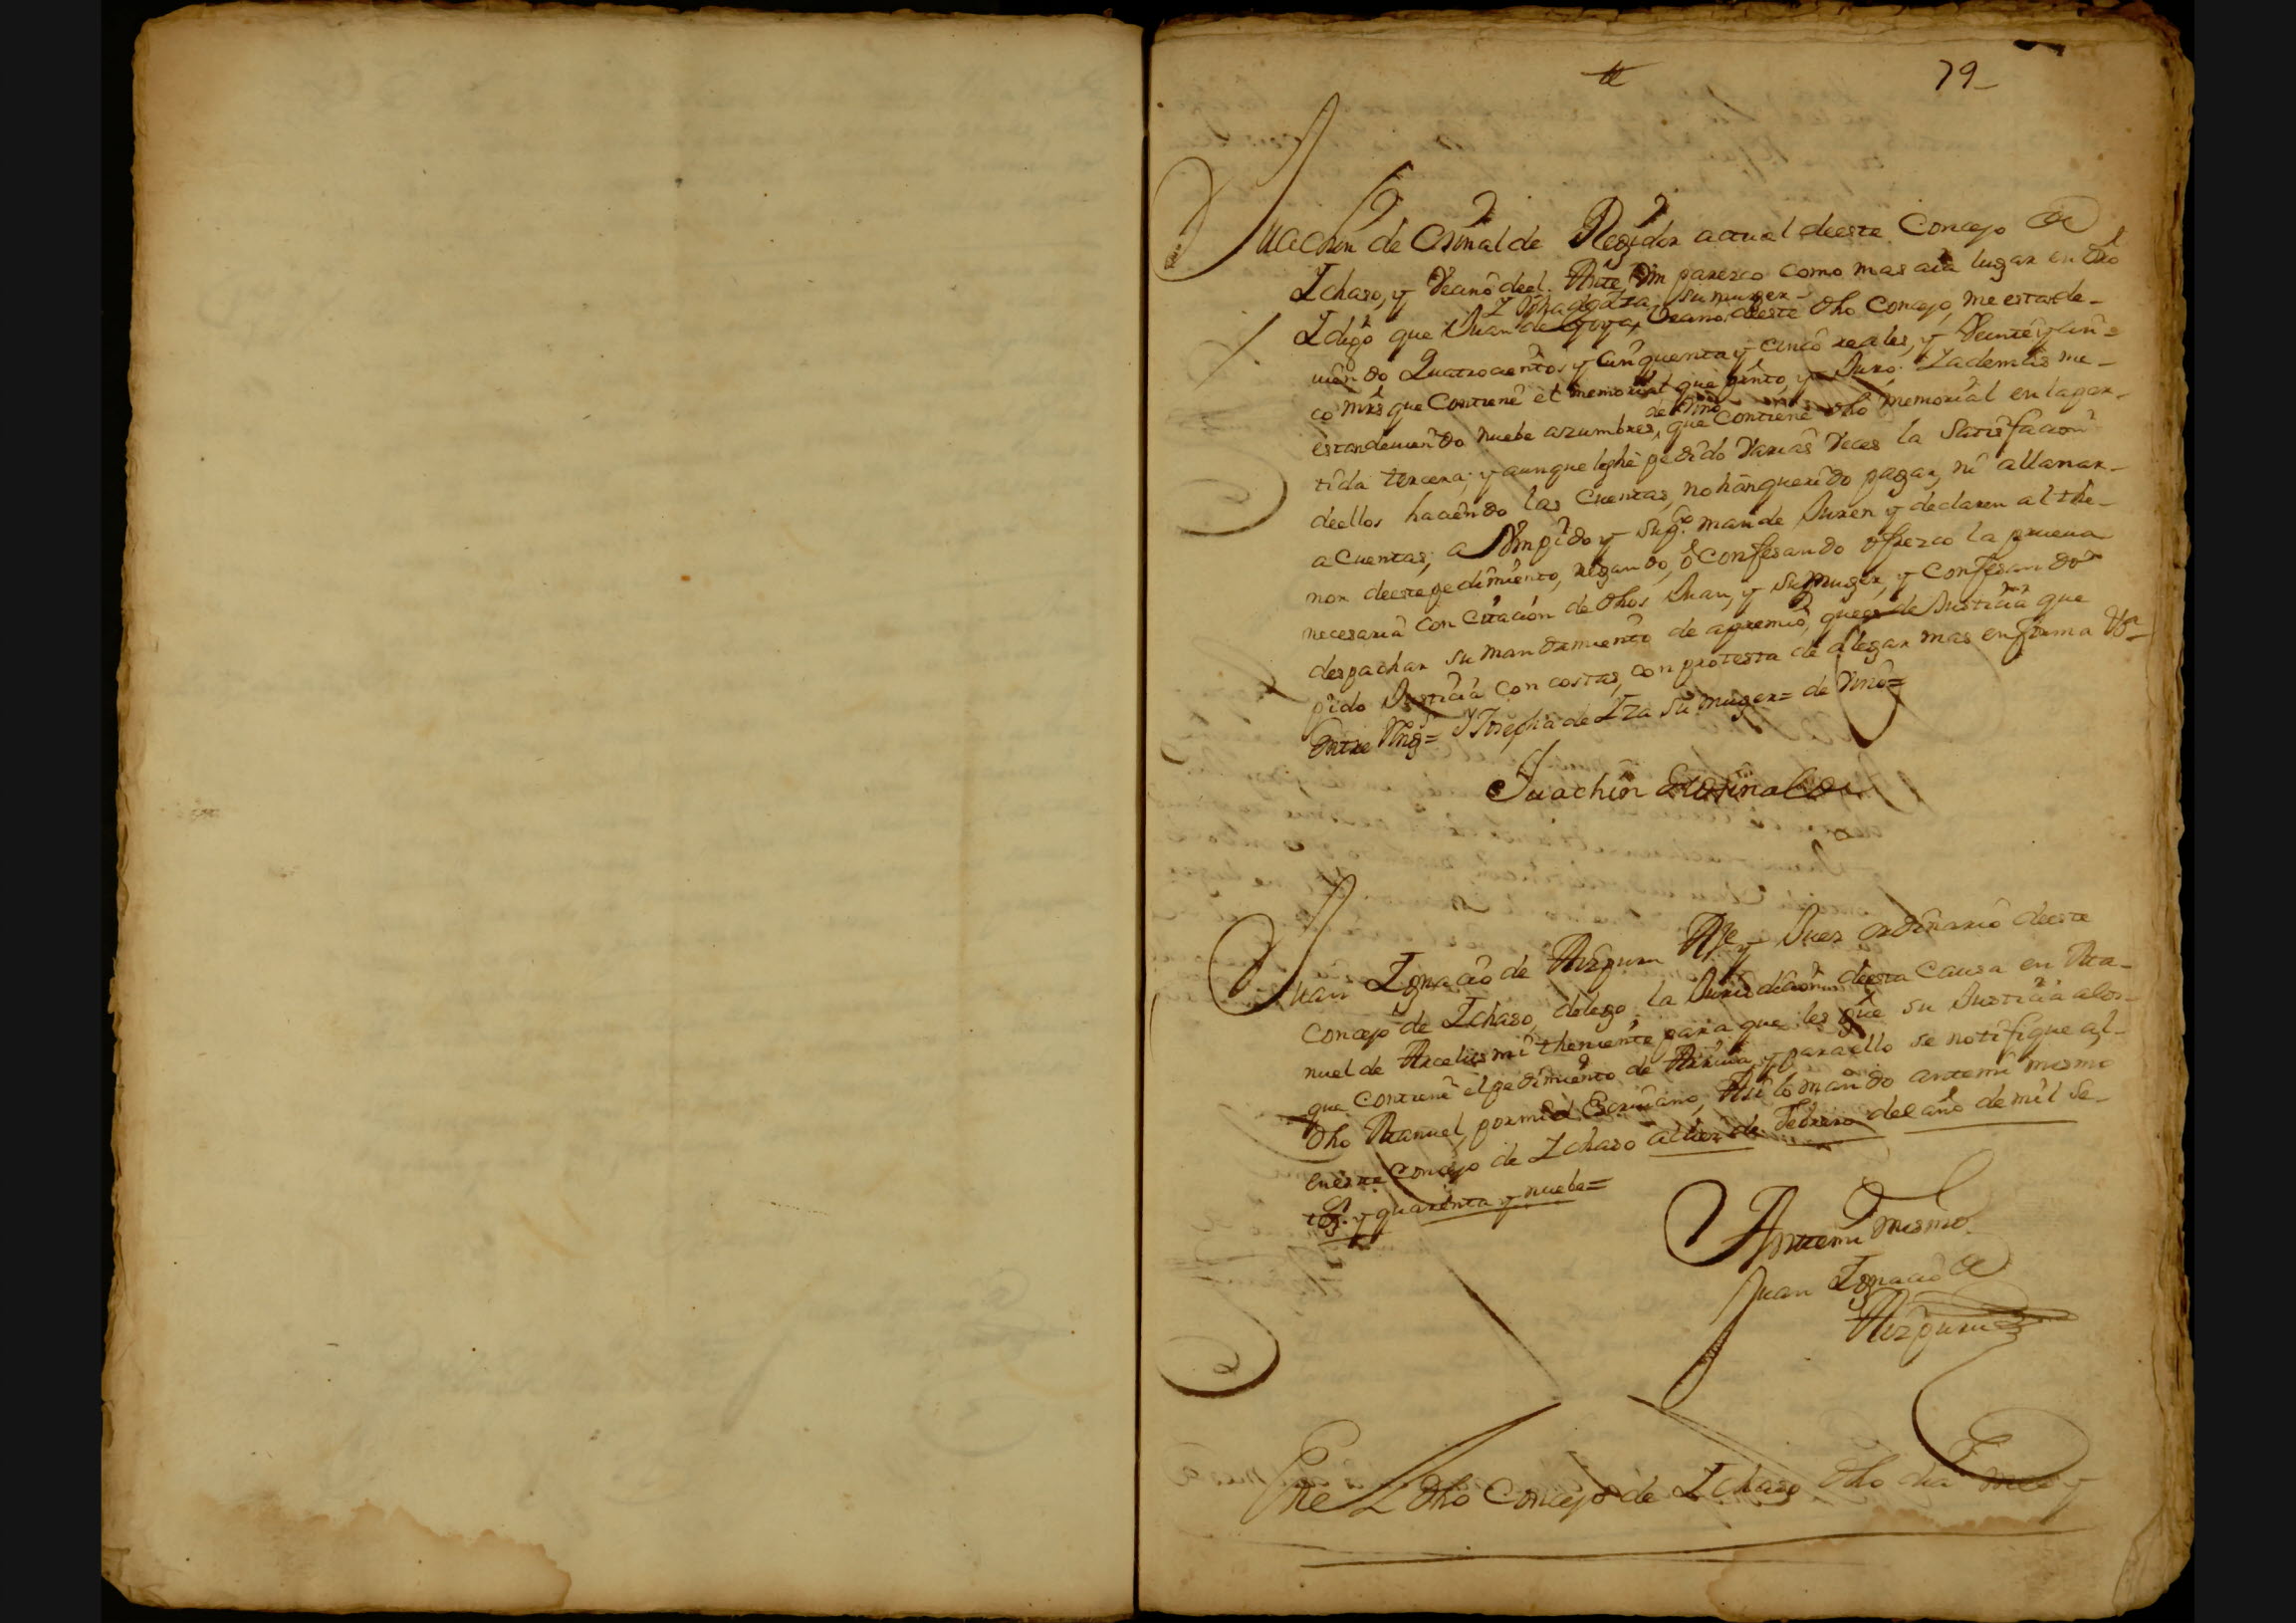 79
Juachin de Osinalde Regidor actual deeste Concejo de
Ichaso, y Vecino deel. Ante Vm parezco como mas aia lugar en dro
Y Josepha de Iza su muger
I digo que Juan de Vecino deeste dho Concejo, me estan de-
viendo Quatrocientos y Cinquenta y cinco reales, y Veinte y cin-
co mrs que Contiene el memorial que psento y Juro. Iademas me-
estandeviendo nuebe azumbres, de Vino que Contiene dho memorial en lapar-
tida tercera; y aunque leshe pedido Varias Veces la Satisfacion
deellos haciendo las Cuentas, nohanquerido pagar, ni allanar-
a Cuentas; a Vm pido y Supco mande Juren y declaren al the-
nor deeste pedimiento, negando, ò Confesando ofrezco la prueva
necesaria con Citacion de dhos Juan, y Sumuger, y Confesando
despachar su mandamiento de apremio, quees de Justicia que
pido Justicia con costas, con protesta de alegar mas enforma Va
Entre Rengs = Y Josepha de Iza su muger = de Vino =
Juachin de Osinalde
Juan Ignacio de Aizpuru Alle y Juez ordinario deeste
Concejo de Ichaso, delego la Jurisdicion deesta Causa en Ma-
nuel de Arcelus mi theniente para que les gue su Justicia alos
que Contiene el pedimiento de Arriva, y paraello se notifique al-
dho Manuel, pormi el Escrivano, Asi lo mando antemi mismo
eneste Concejo de Ichaso adiez de Febrero del año de mil se-
tcs. y quarenta y nuebe =
Antemi mismo
Juan Ignacio de
Aizpuru
En el dho Concejo de Ichaso dho dia mes y